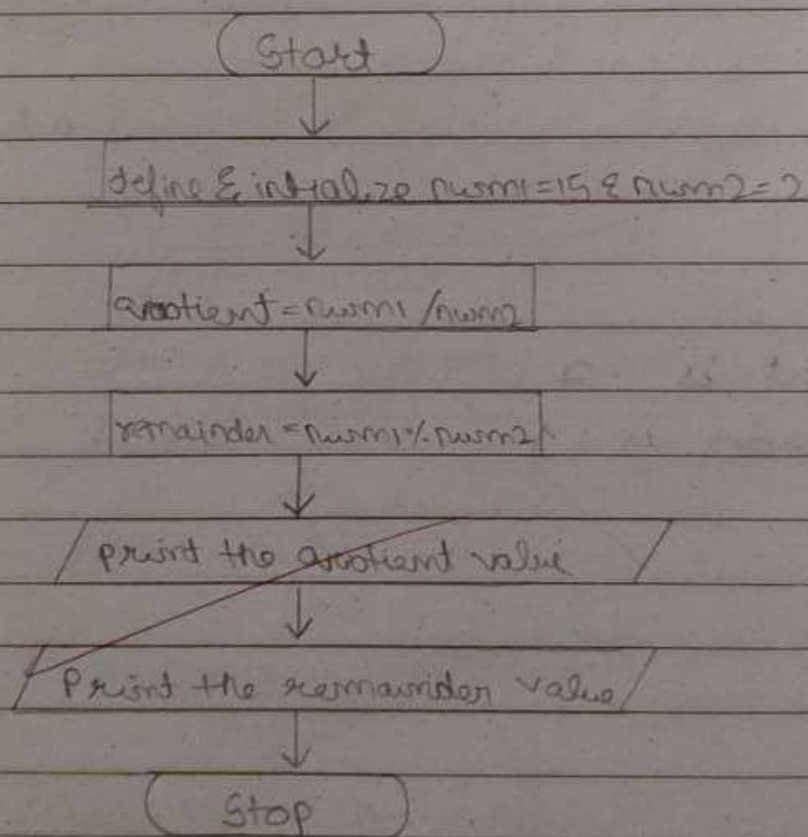 Start
define & initialize num1=15 & num2=2
quotient=num1/num2
remainder=num1%num2
print the quotient value
Print the remainder value
Stop